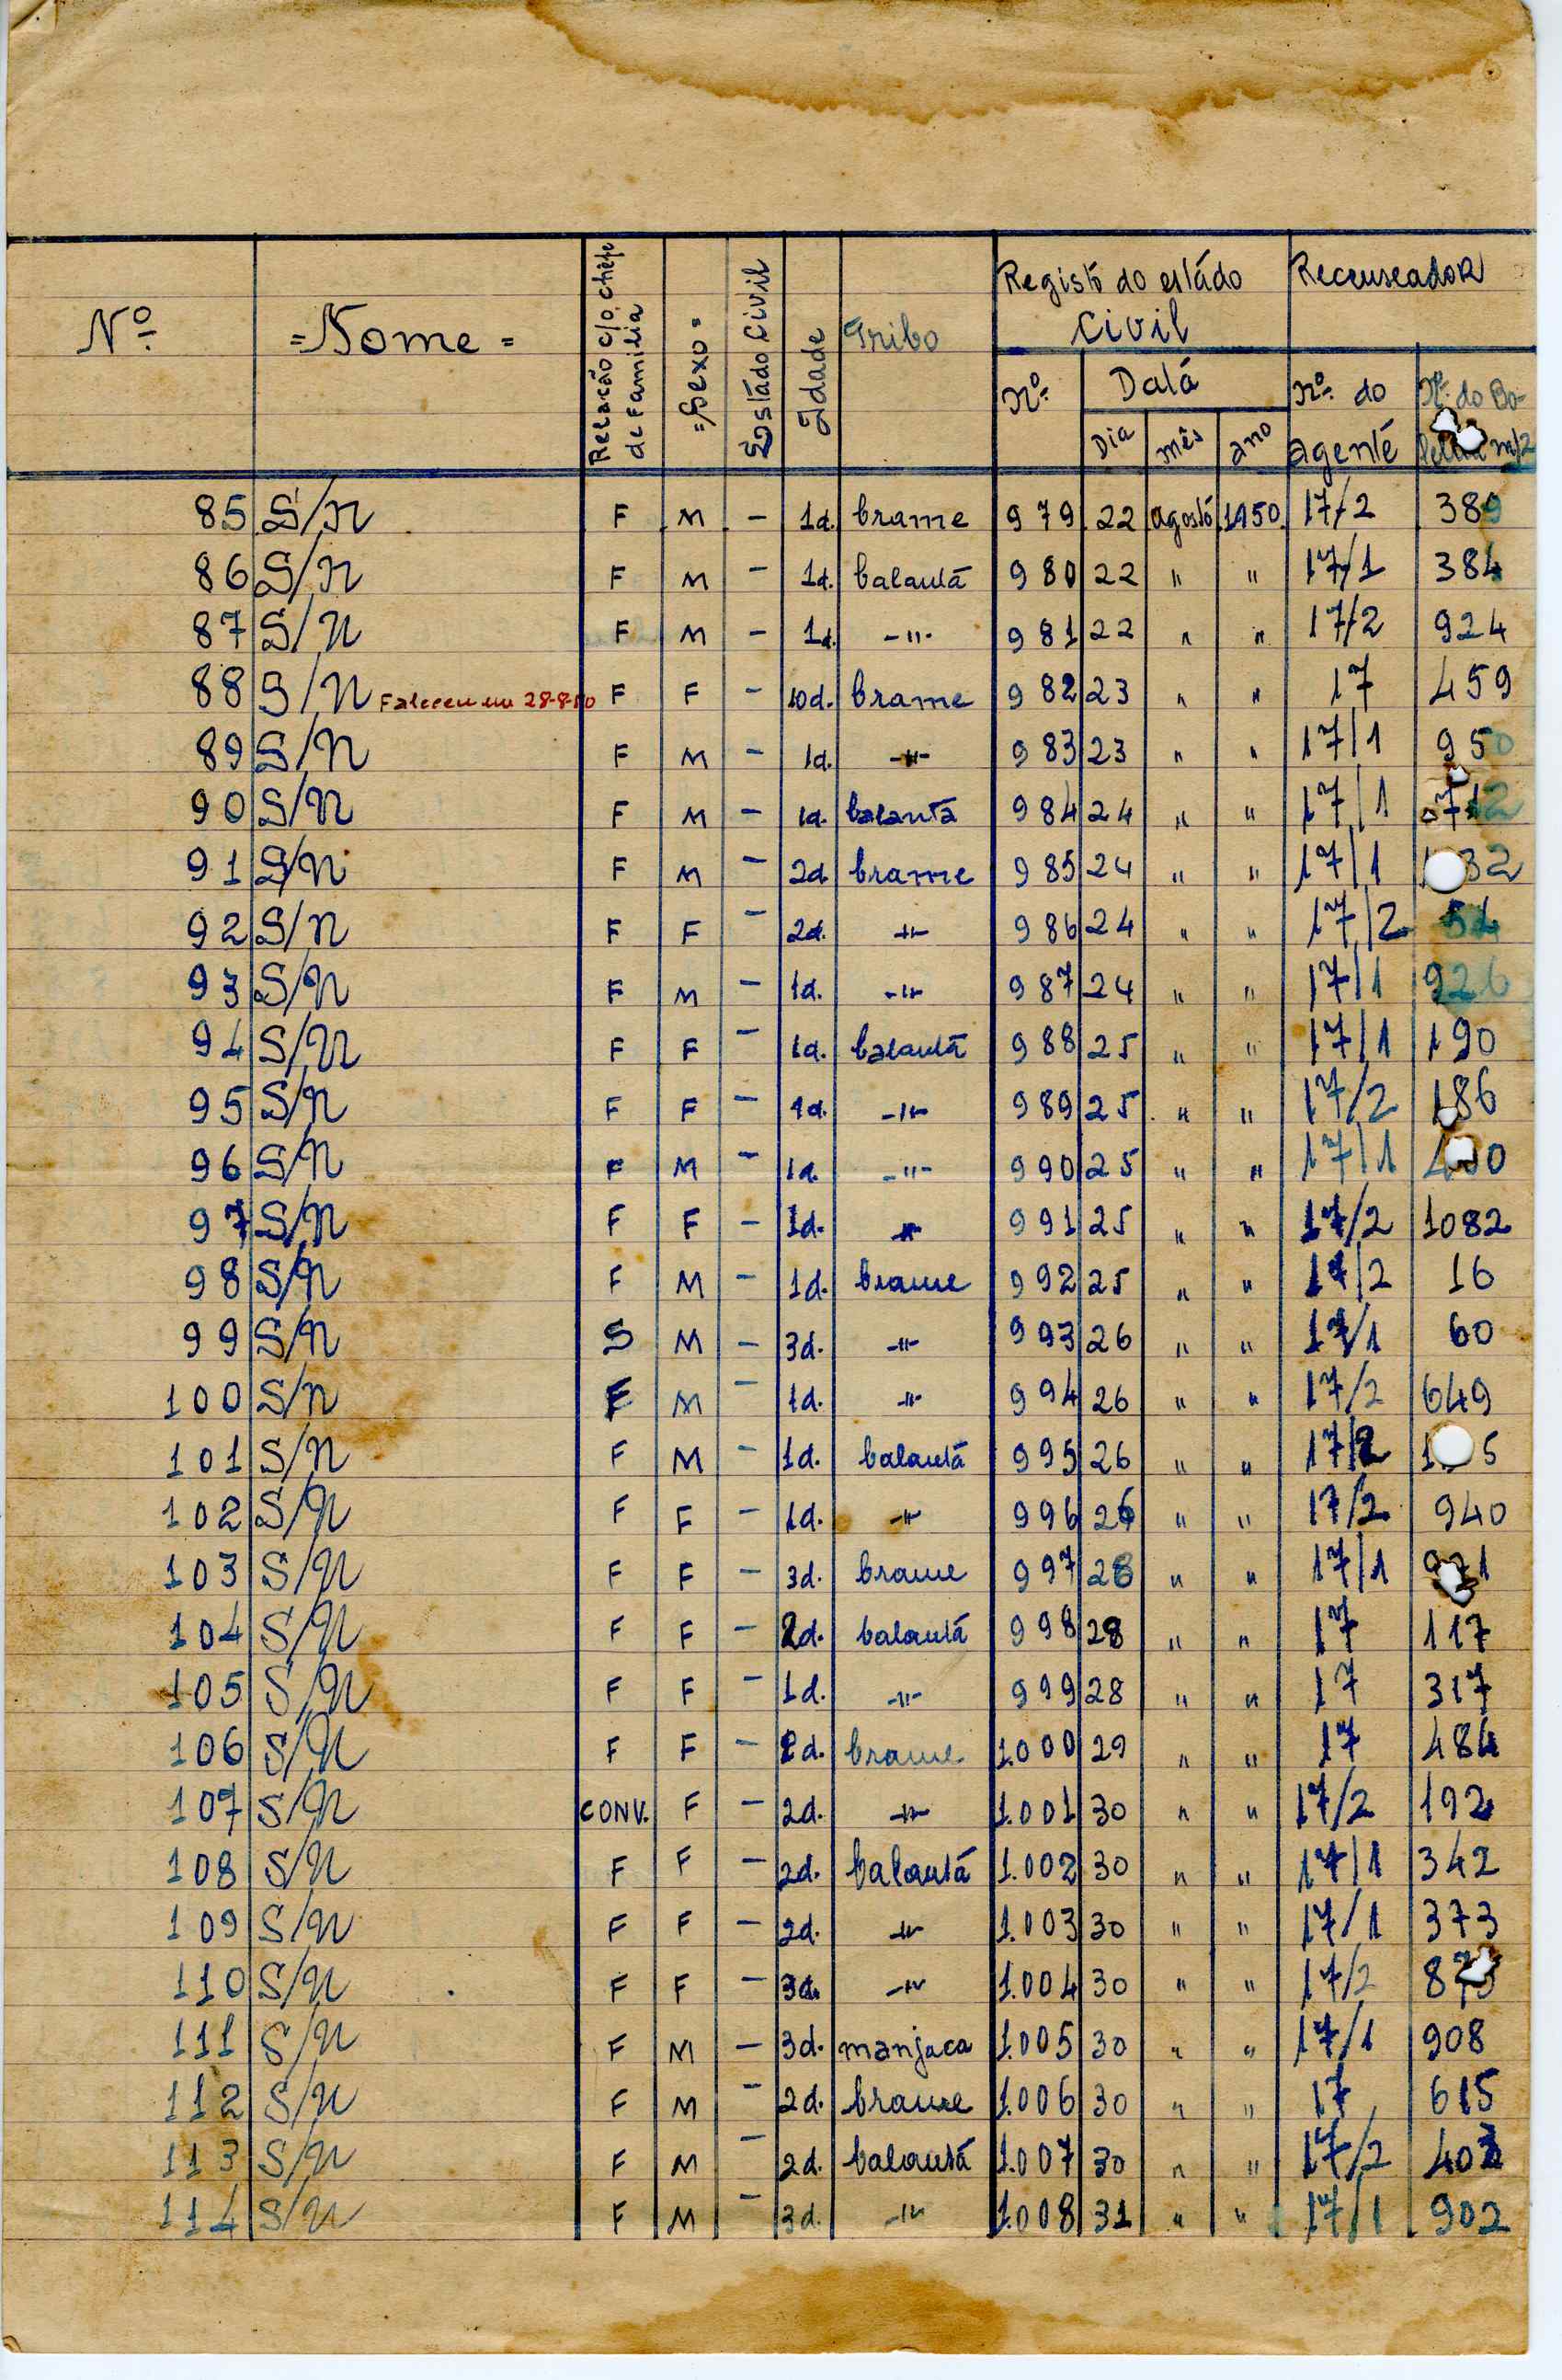 Nº = Nome = Relação c/o chefe de Familia = Sexo = Estádo Civil Idade Tribo Registo do estádo Civil Recenseador
Nº Datá Nº do agenté Nº do Bo- m/2
Dia mês ano
85 S/N F M - 1d. brame 979 22 agostó 1950 17/2 389
86 S/N F M - 1d. balantá 980 22 " " 17/1 384
87 S/N F M - 1d. -"- 981 22 " " 17/2 924
88 S/N Faleceu em 28-8-50 F F - 10d. brame 982 23 " " 17 459
89 S/N F M - 1d. -"- 983 23 " " 17/1 950
90 S/N F M - 1d. balantá 984 24 " " 17/1
91 S/N F M - 2d brame 985 24 " " 17/1
92 S/N F F - 2d. -"- 986 24 " " 17/2
93 S/N F M - 1d. -"- 987 24 " " 17/1 926
94 S/N F F - 1d. balantá 988 25 " " 17/1 190
95 S/N F F - 1d. -"- 989 25 " " 17/2 186
96 S/N F M - 1d. -"- 990 25 " " 17/1
97 S/N F F - 1d. -"- 991 25 " " 17/2 1082
98 S/N F M - 1d. brame 992 25 " " 17/2 16
99 S/N S M - 3d. -"- 993 26 " " 17/1 60
100 S/N F M - 1d. -"- 994 26 " " 17/2 649
101 S/N F M - 1d. balantá 995 26 " " 17/2
102 S/N F F - 1d. -"- 996 26 " " 17/2 940
103 S/N F F - 3d. brame 997 28 " " 17/1
104 S/N F F - 2d. balantá 998 28 " " 17 117
105 S/N F F - 1d. -"- 999 28 " " 17 317
106 S/N F F - 2d. brame 1.000 29 " " 17 484
107 S/N CONV. F - 2d. -"- 1.001 30 " " 17/2 192
108 S/N F F - 2d. balantá 1.002 30 " " 17/1 342
109 S/N F F - 2d. -"- 1.003 30 " " 17/1 373
110 S/N F F - 3d. -"- 1.004 30 " " 17/2
111 S/N F M - 3d. manjaca 1.005 30 " " 17/1 908
112 S/N F M - 2d. brame 1.006 30 " " 17 615
113 S/N F M - 2d. balantá 1.007 30 " " 17/2 403
114 S/N F M - 3d. -"- 1.008 31 " " 17/1 902